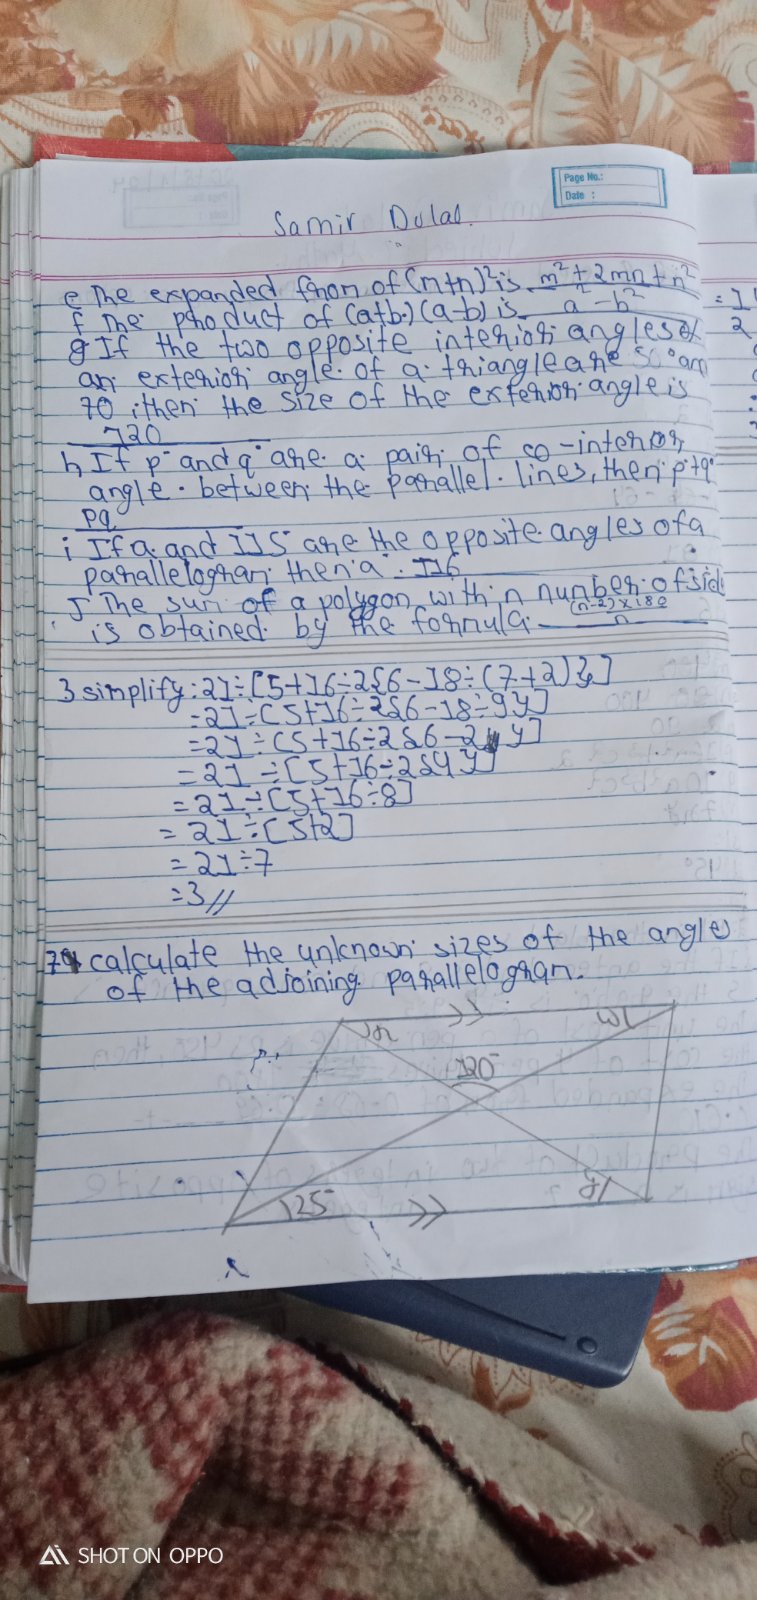 Page No.:
Date :
Samir Dulal.
e The expanded from of (m+n)² is m² + 2mn + n²
f The product of (a+b) (a-b) is a² - b²
g If the two opposite interior angles of
an exterior angle of a triangle are 50° an
70 , then the size of the exterior angle is
120
h, If p° and q° are a pair of co-interior
angle between the parallel lines, then p+q
pq
i If a and 115 are the opposite angles of a
parallelogran then a 116
J The sum of a polygon with n number of side
is obtained by the formula (n-2)×180/n
3 simplify: 21÷[5+16÷2{6-18÷(7+2)}]
=21÷[5+16÷2{6-18÷9}]
=21÷[5+16÷2{6-2}]
=21÷[5+16÷2{4}]
=21÷[5+16÷8]
=21÷[5+2]
=21÷7
=3//
calculate the unknown sizes of the angles
of the adjoining parallelogran.
x
w
120°
125°
y
SHOT ON OPPO